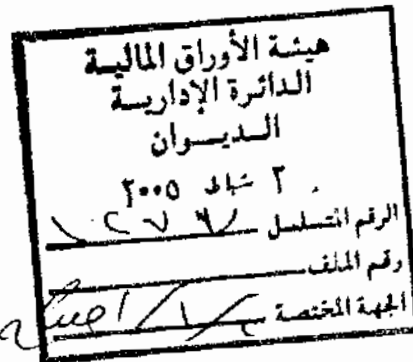 هيئة الأوراق المالية
الدائرة الإدارية
الديوان
٢ شباط ٢٠٠٥
الرقم المتسلسل
رقم الملف
الجهة المختصة